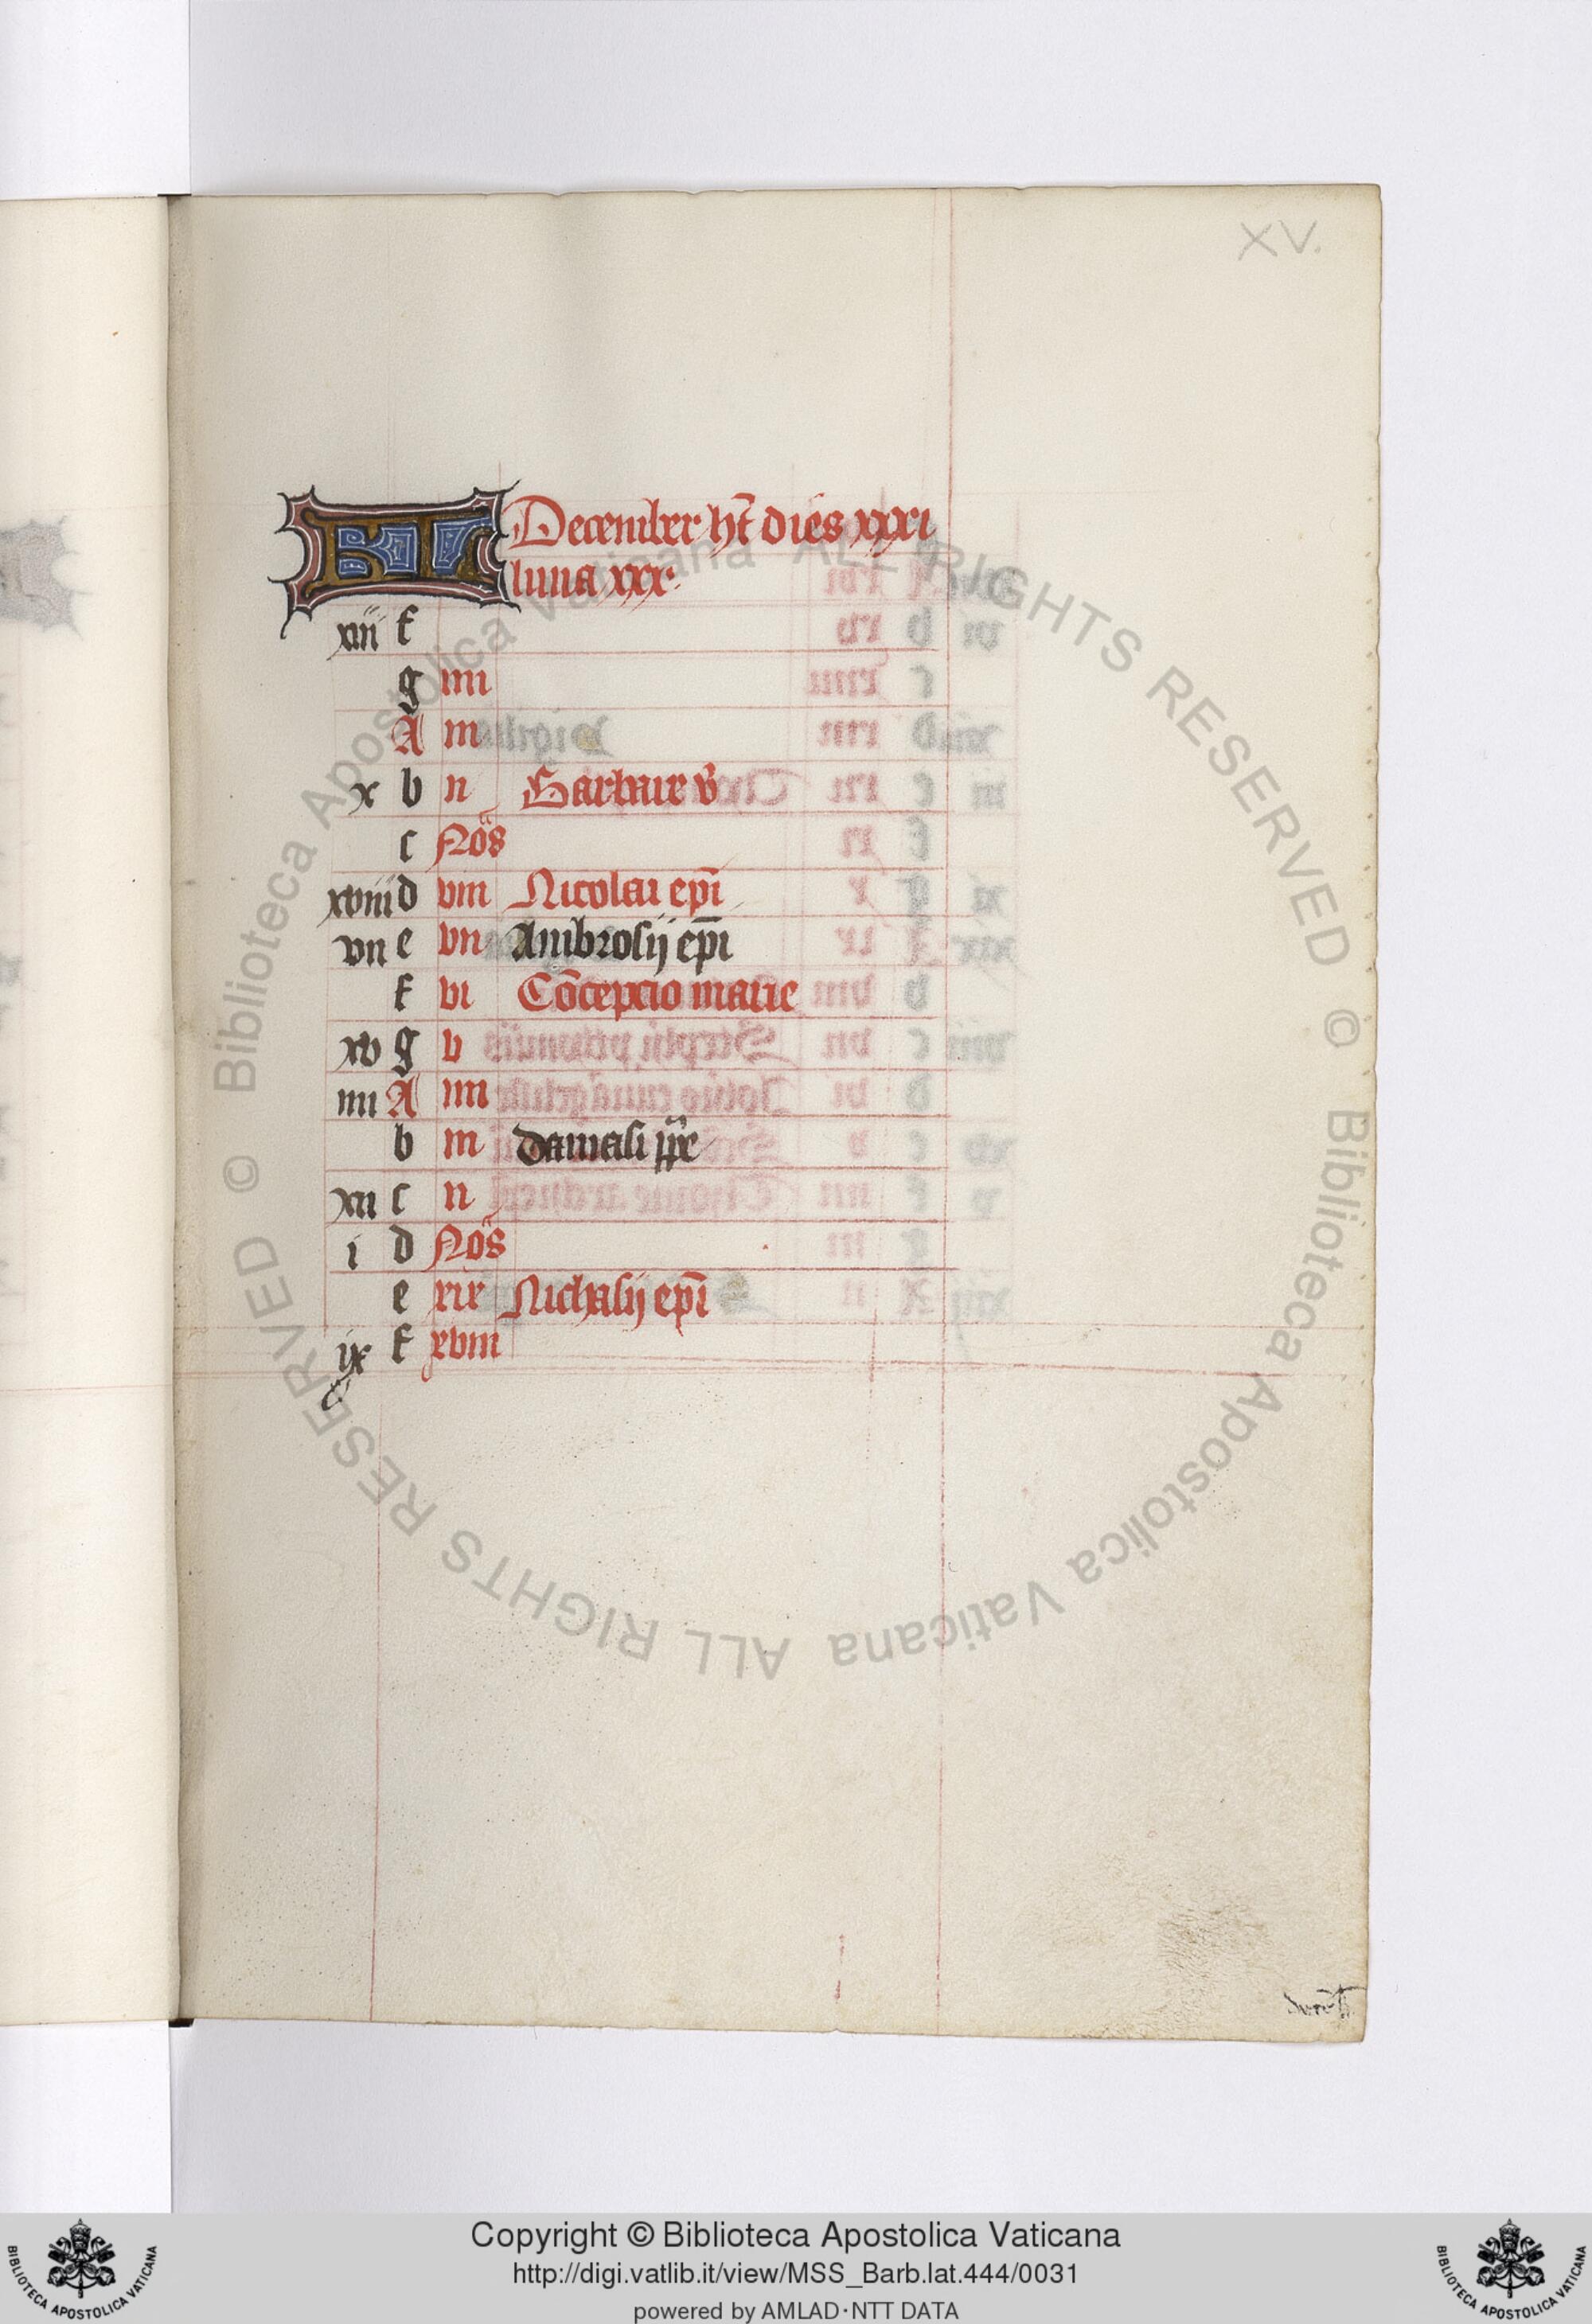 XV.
KL December ht dies xxxi
luna xxx.
xiii f
g iiii
A iii
x b ii Barbare v
c Nos
xviii d viii Nicolai epi
vii e vii Ambrosij epi
f vi Concepcio marie
xv g v
iiii A iiii
b iii damasi pp
xii c ii
i d Nos
e xix Nichasij epi
ix f xviii
© Biblioteca Apostolica Vaticana ALL RIGHTS RESERVED
© Biblioteca Apostolica Vaticana ALL RIGHTS RESERVED
Copyright © Biblioteca Apostolica Vaticana
http://digi.vatlib.it/view/MSS_Barb.lat.444/0031
powered by AMLAD·NTT DATA
BIBLIOTECA APOSTOLICA VATICANA
BIBLIOTECA APOSTOLICA VATICANA